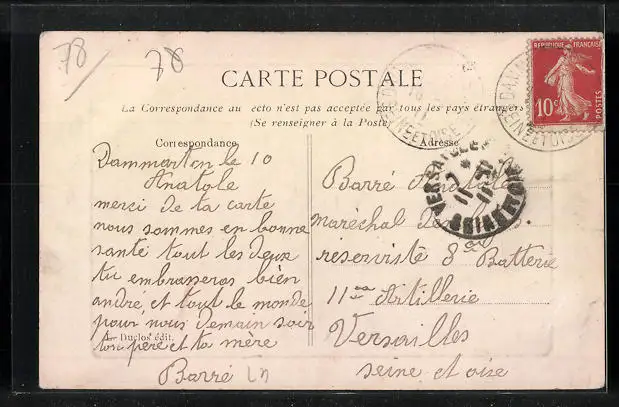 78
78
CARTE POSTALE
La Correspondance au recto n'est pas acceptée par tous les pays étrangers
(Se renseigner à la Poste)
Correspondance
Adresse
REPUBLIQUE FRANÇAISE
10c
POSTES
SEINE ET OISE
SEINE ET OISE
VERSAILLES
Dammartin le 10
Anatole
merci de ta carte
nous sommes en bonne
santé tout les deux
tu embrasseras bien
andré et tout le monde
pour nous Demain soir
ton père et ta mère
Barré
Duclos édit.
Barré Anatole
maréchal de
réserviste 8 Batterie
11 Artillerie
Versailles
seine et oise